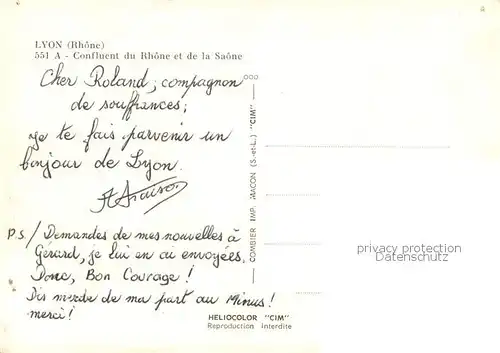 LYON (Rhône)
551 A - Confluent du Rhône et de la Saône
Cher Roland, compagnon
de souffrances;
je te fais parvenir un
bonjour de Lyon.
P.S./ Demandes de mes nouvelles à
Gérard, je lui en ai envoyées.
Donc, Bon Courage!
Dis merde de ma part au Minus!
merci!
COMBIER IMP. MACON (S.-et-L.) "CIM"
privacy protection
Datenschutz
HELIOCOLOR "CIM"
Reproduction interdite